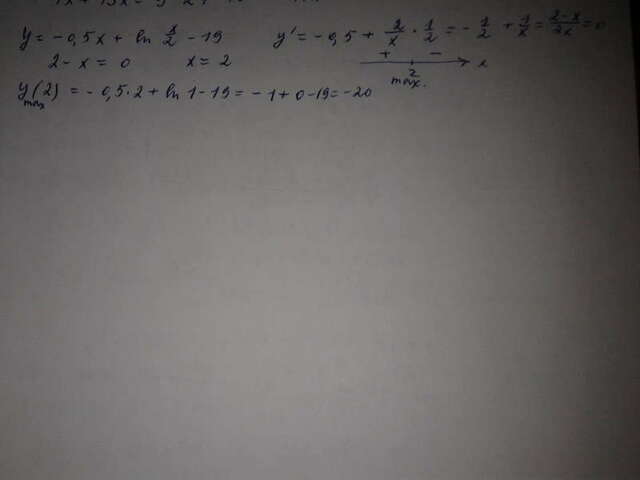 y = -0,5x + ln x/2 - 19 y' = -0,5 + 2/x · 1/2 = -1/2 + 1/x = 2-x/2x = 0
2 - x = 0 x = 2 + - x
2
max.
y(2) = -0,5·2 + ln 1 - 19 = -1 + 0 - 19 = -20
max